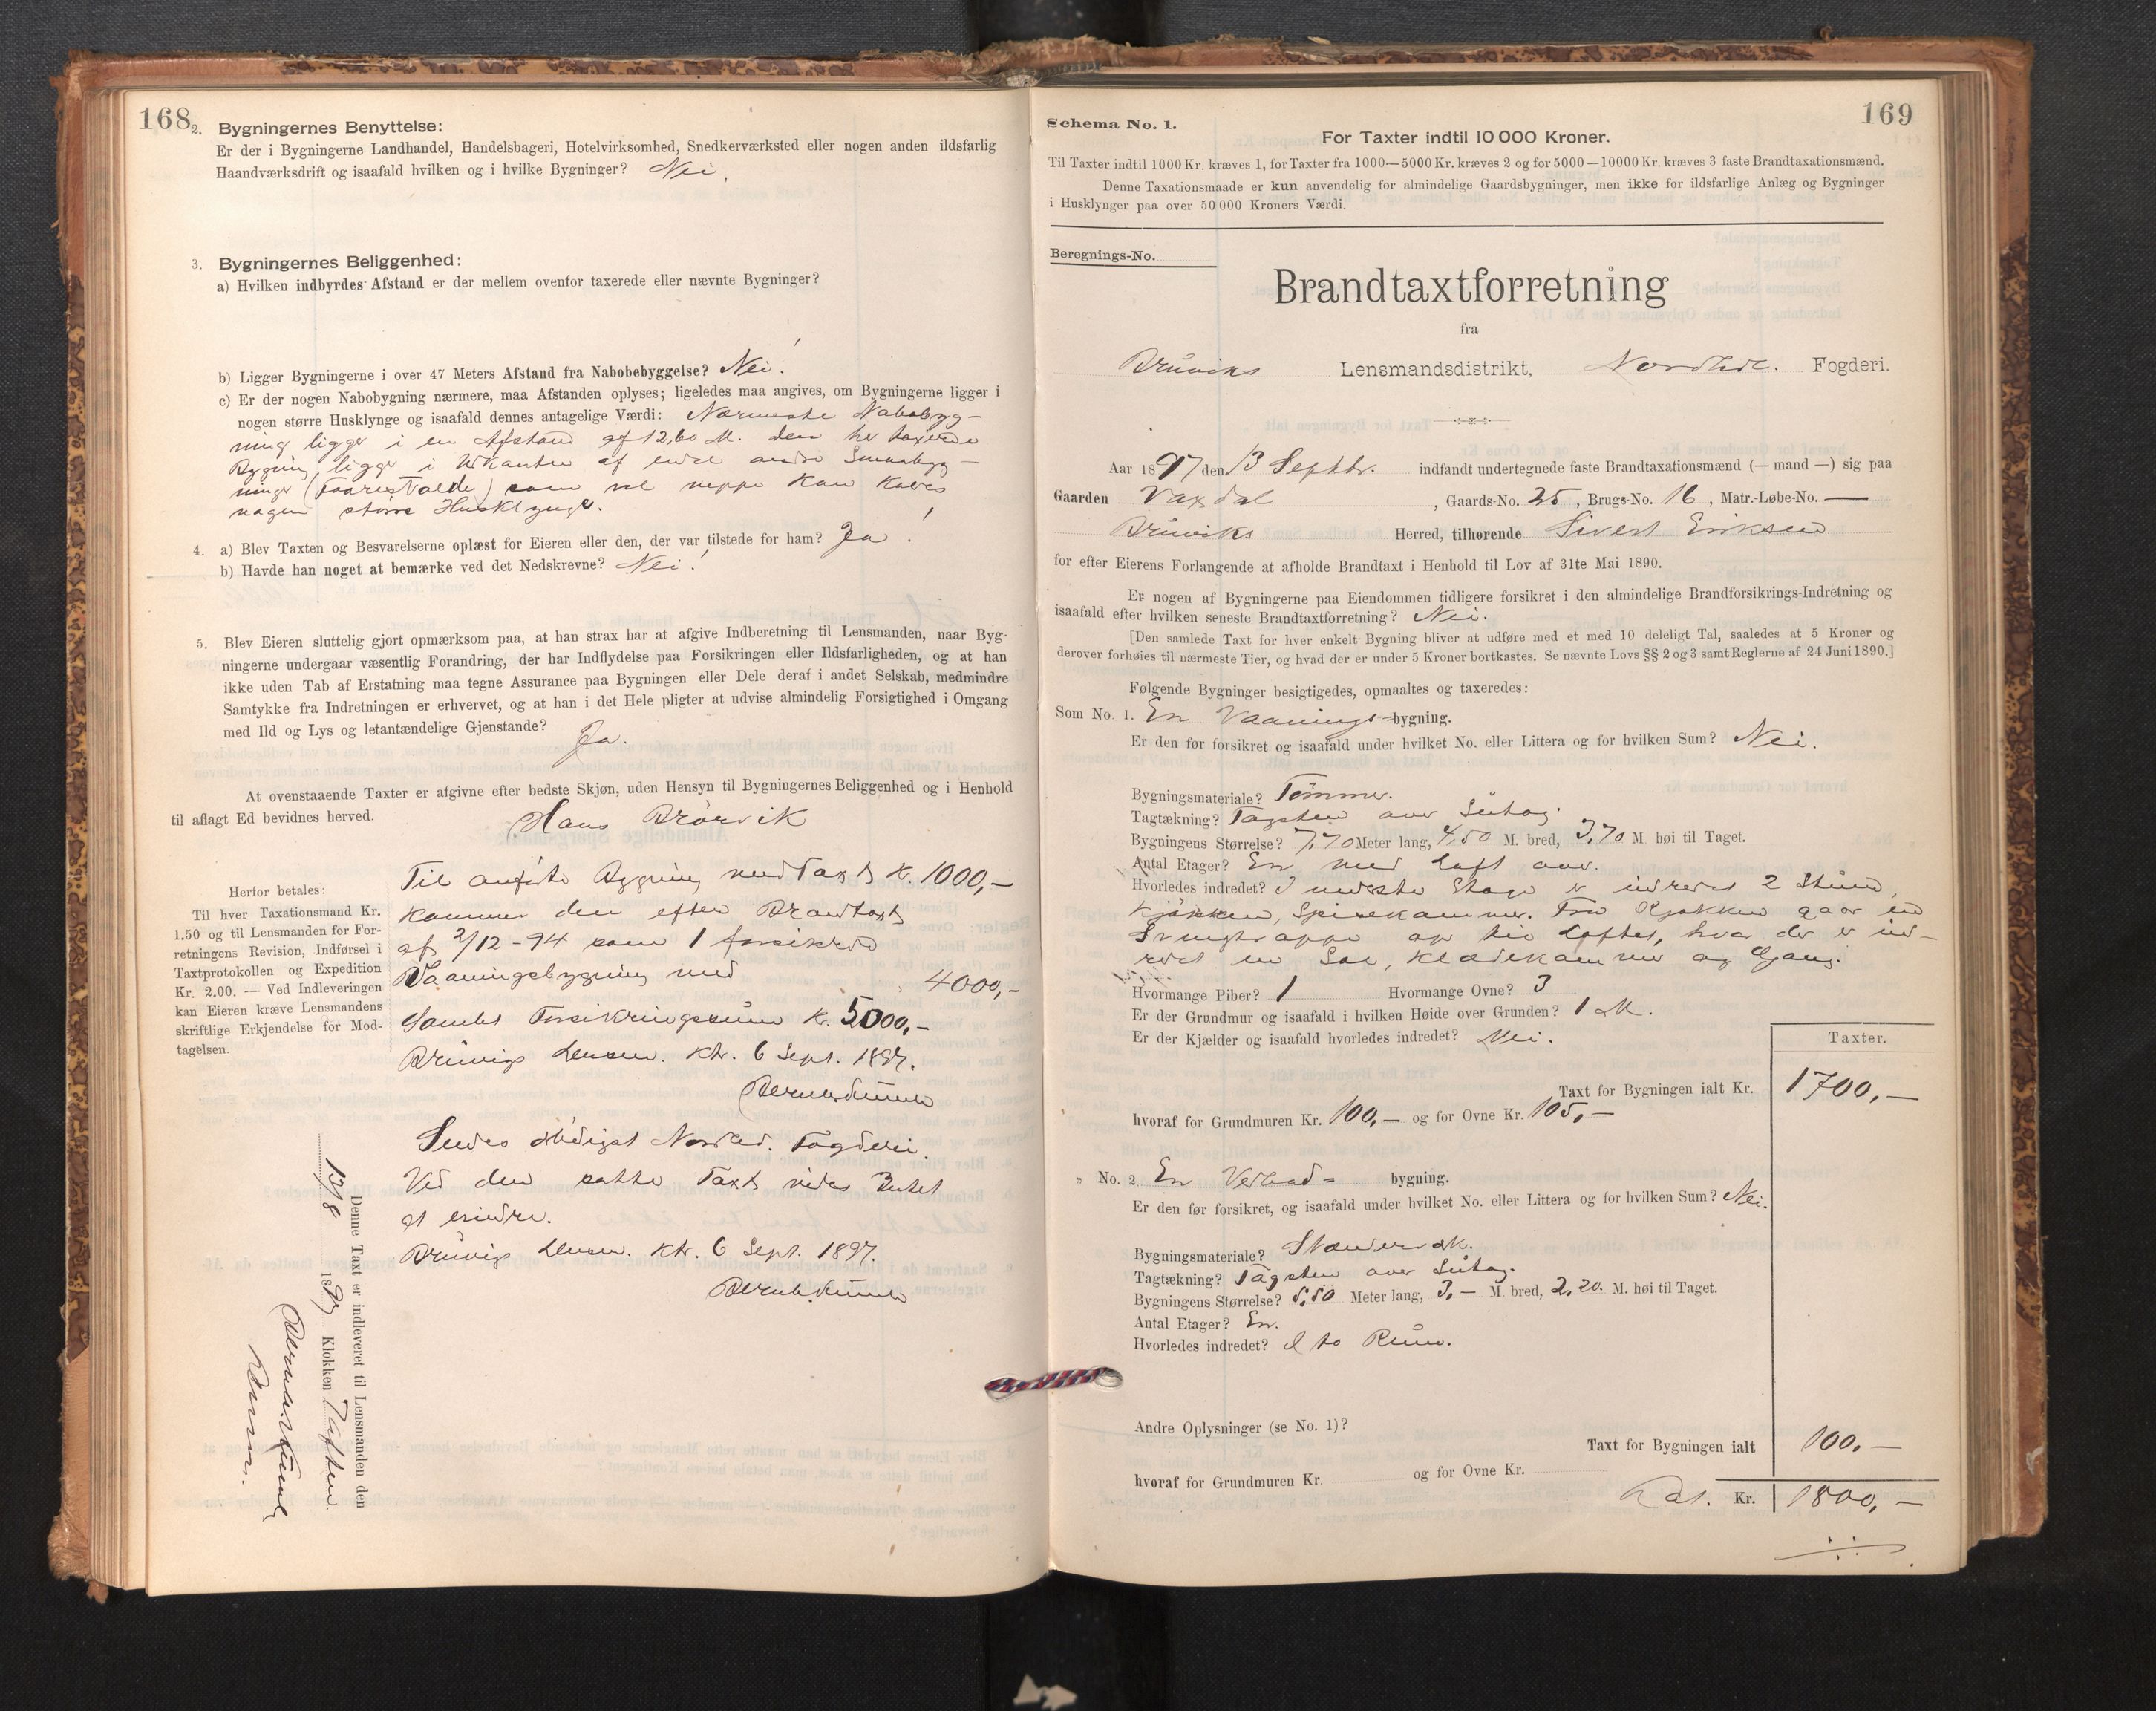 168
2. Bygningernes Benyttelse:
Er der i Bygningerne Landhandel, Handelsbageri, Hotelvirksomhed, Snedkerværksted eller nogen anden ildsfarlig
Haandværksdrift og isaafald hvilken og i hvilke Bygninger? Nei.
3. Bygningernes Beliggenhed:
a) Hvilken indbyrdes Afstand er der mellem ovenfor taxerede eller nævnte Bygninger?
b) Ligger Bygningerne i over 47 Meters Afstand fra Nabobebyggelse? Nei!
c) Er der nogen Nabobygning nærmere, maa Afstanden oplyses; ligeledes maa angives, om Bygningerne ligger i
nogen større Husklynge og isaafald dennes antagelige Værdi: Nærmeste Nabobyg-
ning ligger i en Afstand af 12,60 M. den her taxerede
Bygning ligger i Udkanten af endel andre Smaabyg-
ninger (Faarestalde) som vel neppe kan kaldes
nogen større Husklynge.
4. a) Blev Taxten og Besvarelserne oplæst for Eieren eller den, der var tilstede for ham? Ja!
b) Havde han noget at bemærke ved det Nedskrevne? Nei!
5. Blev Eieren sluttelig gjort opmærksom paa, at han strax har at afgive Indberetning til Lensmanden, naar Byg-
ningerne undergaar væsentlig Forandring, der har Indflydelse paa Forsikringen eller Ildsfarligheden, og at han
ikke uden Tab af Erstatning maa tegne Assurance paa Bygningen eller Dele deraf i andet Selskab, medmindre
Samtykke fra Indretningen er erhvervet, og at han i det Hele pligter at udvise almindelig Forsigtighed i Omgang
med Ild og Lys og letantændelige Gjenstande? Ja.
At ovenstaaende Taxter er afgivne efter bedste Skjøn, uden Hensyn til Bygningernes Beliggenhed og i Henhold
til aflagt Ed bevidnes herved.
Hans Brørvik
Herfor betales:
Til hver Taxationsmand Kr.
1.50 og til Lensmanden for For-
retningens Revision, Indførsel i
Taxtprotokollen og Expedition
Kr. 2.00. — Ved Indleveringen
kan Eieren kræve Lensmandens
skriftlige Erkjendelse for Mod-
tagelsen.
Til anførte Bygning med Taxt Kr. 1000,-
kommer den efter Brandtaxt
af 2/12-94 som 1 forsikrede
Vaaningsbygning med 4000,-
Samlet Forsikringssum Kr. 5000,-
Brüvigs Lensm. Ktr. 6 Sept. 1897.
Sendes ærbødigst Nordhd. Fogderi.
Ved den satte Taxt vides Intet
at erindre.
Brüvigs Lensm. Ktr. 6 Sept. 1897.
Denne Taxt er indleveret til Lensmanden den
13/8 1897 Klokken 7 Aften.
169
Schema No. 1.
For Taxter indtil 10 000 Kroner.
Til Taxter indtil 1000 Kr. kræves 1, for Taxter fra 1000—5000 Kr. kræves 2 og for 5000—10000 Kr. kræves 3 faste Brandtaxationsmænd.
Denne Taxationsmaade er kun anvendelig for almindelige Gaardsbygninger, men ikke for ildsfarlige Anlæg og Bygninger
i Husklynger paa over 50 000 Kroners Værdi.
Beregnings-No.
Brandtaxtforretning
fra
Brüviks Lensmandsdistrikt, Nordhdl. Fogderi.
Aar 1897 den 13 Septbr. indfandt undertegnede faste Brandtaxationsmænd (— mand —) sig paa
Gaarden Vaxdal, Gaards-No. 25, Brugs-No. 16, Matr.-Løbe-No. —
Brüviks Herred, tilhørende Sivert Eriksen
for efter Eierens Forlangende at afholde Brandtaxt i Henhold til Lov af 31te Mai 1890.
Er nogen af Bygningerne paa Eiendommen tidligere forsikret i den almindelige Brandforsikrings-Indretning og
isaafald efter hvilken seneste Brandtaxtforretning? Nei.
[Den samlede Taxt for hver enkelt Bygning bliver at udføre med et med 10 deleligt Tal, saaledes at 5 Kroner og
derover forhøies til nærmeste Tier, og hvad der er under 5 Kroner bortkastes. Se nævnte Lovs §§ 2 og 3 samt Reglerne af 24 Juni 1890.]
Følgende Bygninger besigtigedes, opmaaltes og taxeredes:
Som No. 1. En Vaanings-bygning.
Er den før forsikret og isaafald under hvilket No. eller Littera og for hvilken Sum? Nei.
Bygningsmateriale? Tømmer.
Tagtækning? Tagsten over Sutag.
Bygningens Størrelse? 7,70 Meter lang, 4,50 M. bred, 3,70 M høi til Taget.
Antal Etager? En, med Loft over.
Hvorledes indredet? I nederste Etage er indredet 2 Stuer,
Kjøkken, Spisekammer. Fra Kjøkken gaar en
Svingtrappe op til Loftet, hvor der er ind-
redet en Sal, Klædekammer og Gang.
Hvormange Piber? 1 Hvormange Ovne? 3
Er der Grundmur og isaafald i hvilken Høide over Grunden? 1 M.
Er der Kjælder og isaafald hvorledes indredet? Nei.
Taxter.
Taxt for Bygningen ialt Kr. 1700,—
hvoraf for Grundmuren Kr. 100,— og for Ovne Kr. 105,—
„ No. 2. En Vedhus- bygning.
Er den før forsikret, og isaafald under hvilket No. eller Littera og for hvilken Sum? Nei.
Bygningsmateriale? Stænderværk.
Tagtækning? Tagsten over Sutag.
Bygningens Størrelse? 5,50 Meter lang, 3,— M. bred, 2,20. M. høi til Taget.
Antal Etager? En.
Hvorledes indredet? I to Rum.
Andre Oplysninger (se No. 1)?
Taxt for Bygningen ialt 100.—
hvoraf for Grundmuren Kr. og for Ovne Kr.
Lat. Kr. 1800,—